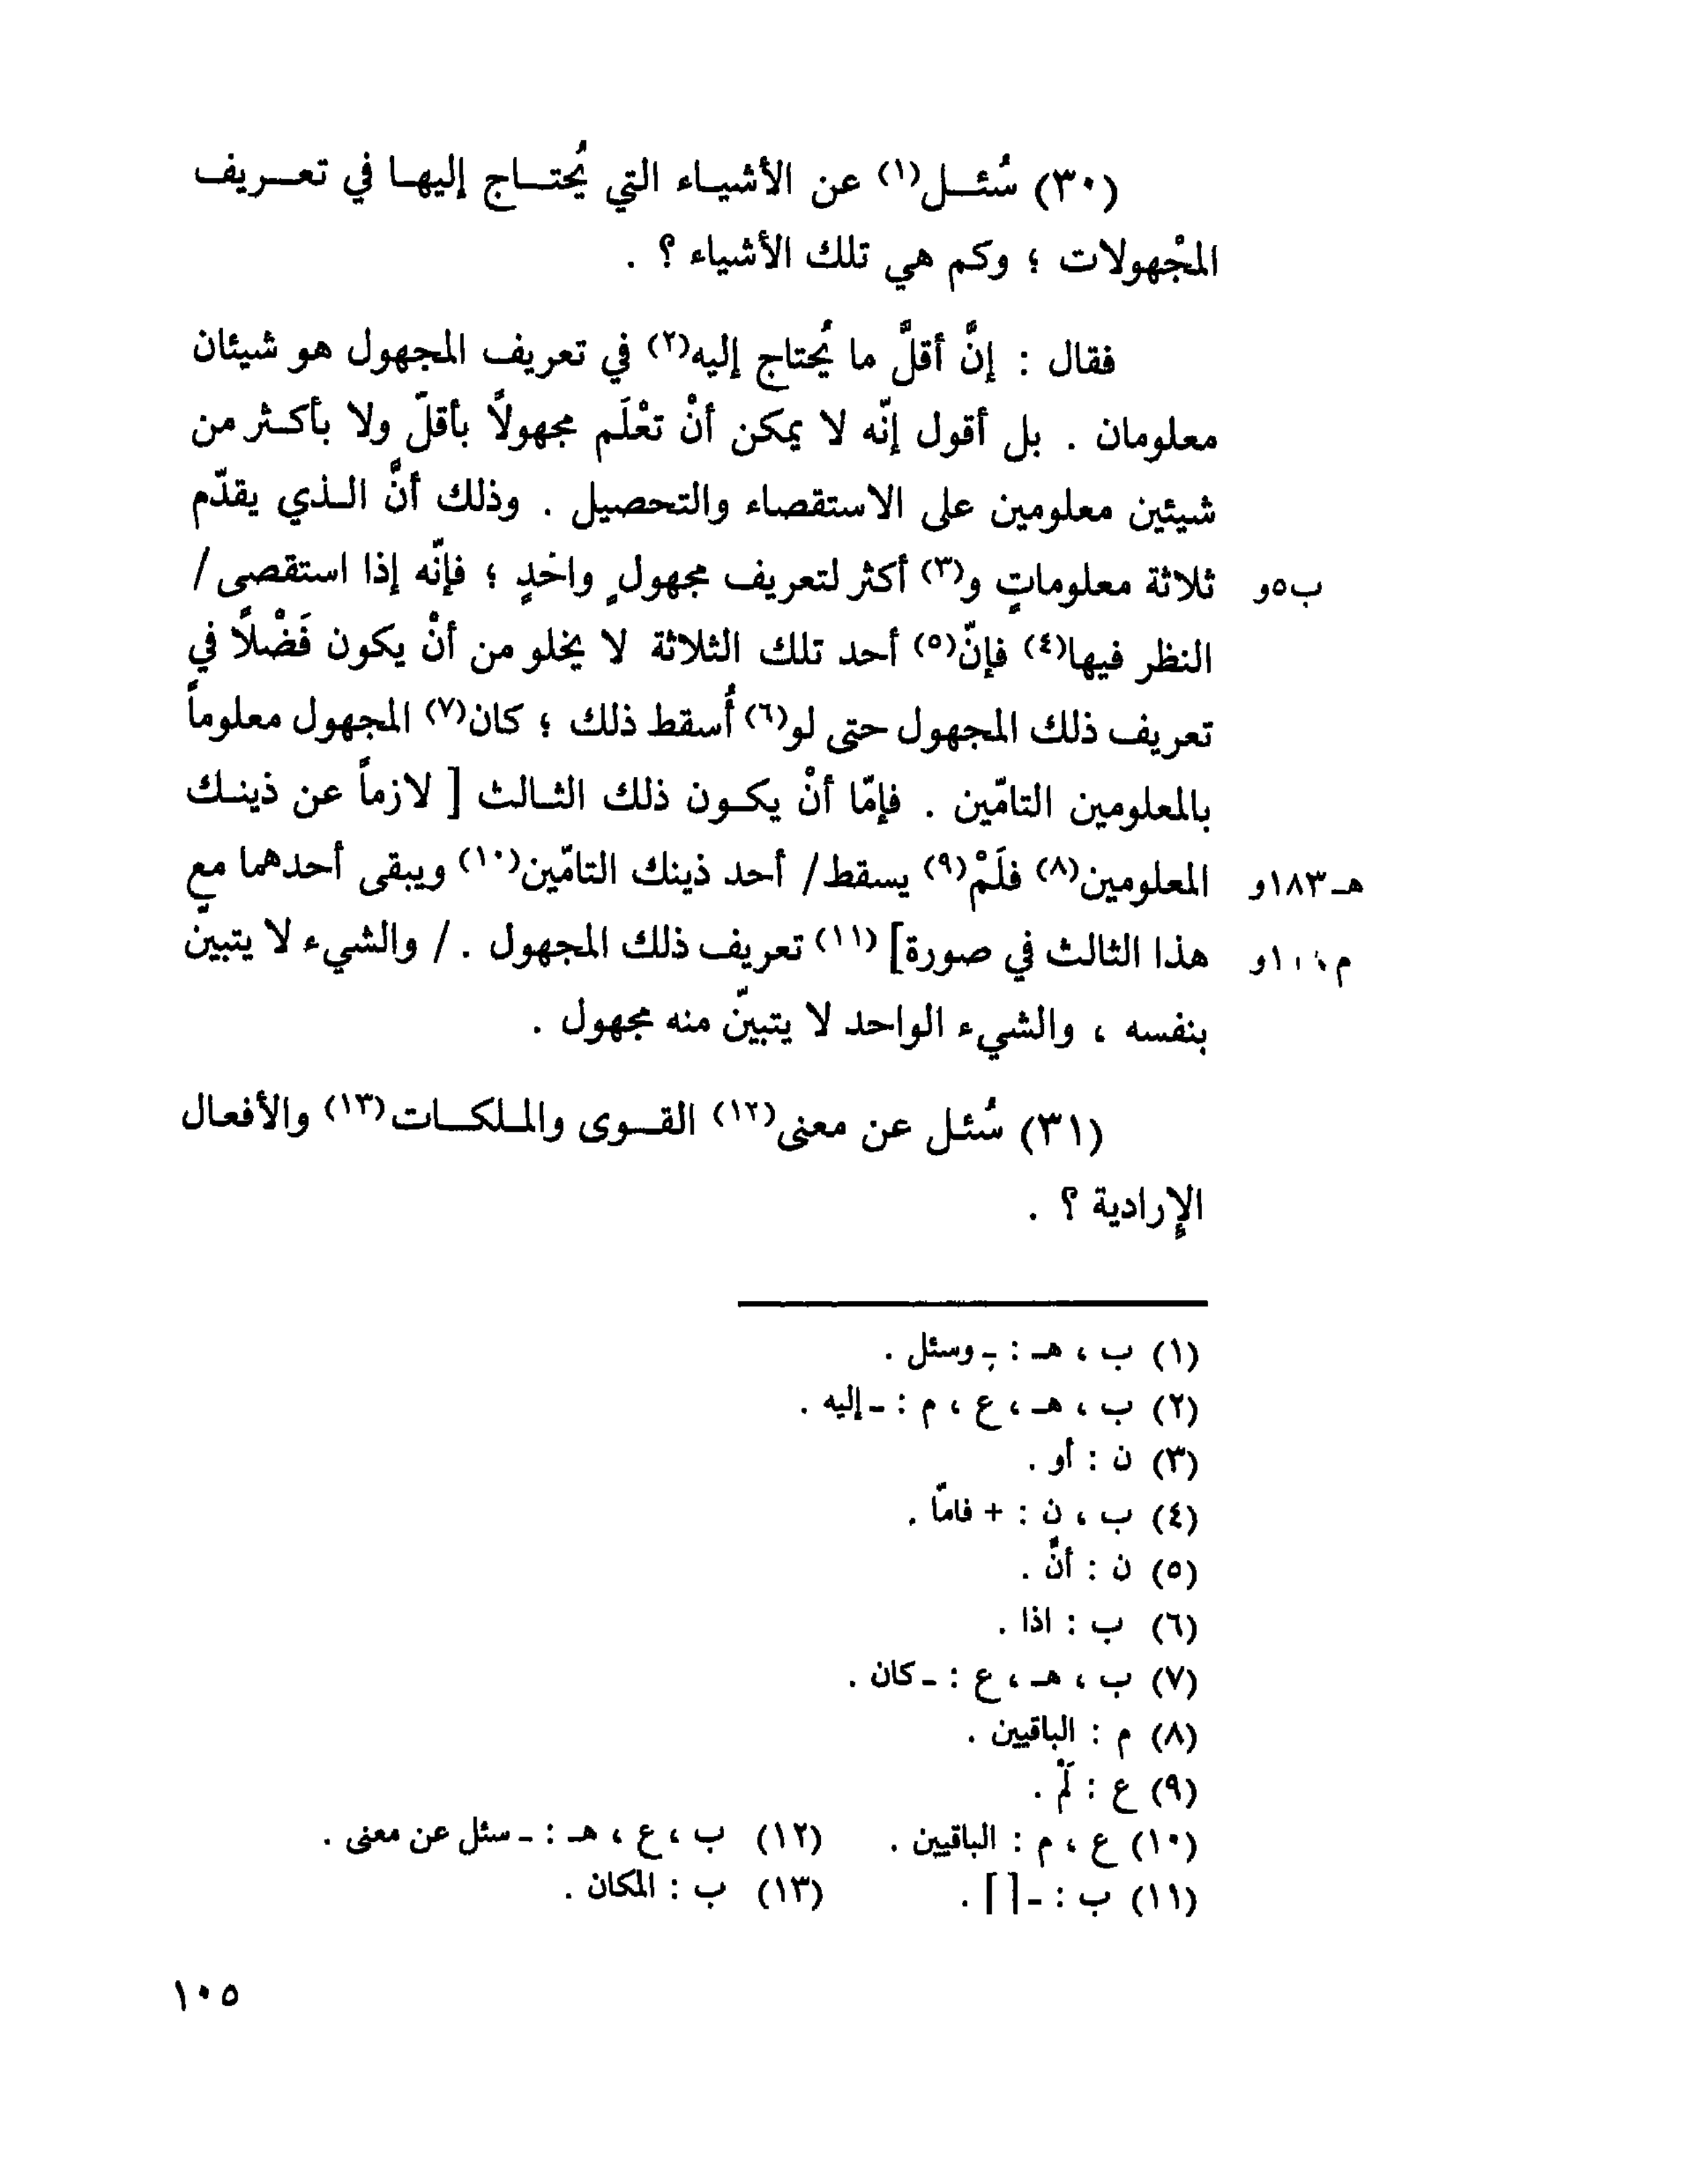 (٣٠) سُئـــل(١) عن الأشيـاء التي يُحتـــاج إليهـا في تعـــريف
المجْهولات ؛ وكم هي تلك الأشياء ؟ .
فقال : إنَّ أقلَّ ما يُحتاج إليه(٢) في تعريف المجهول هو شيئان
معلومان . بل أقول إنّه لا يمكن أنْ تعْلَم مجهولاً بأقلّ ولا بأكـثر من
شيئين معلومين على الاستقصاء والتحصيل . وذلك أنَّ الـذي يقدّم
ب٥و ثلاثة معلوماتٍ و(٣) أكثر لتعريف مجهولٍ واحدٍ ؛ فإنّه إذا استقصى /
النظر فيها(٤) فإنّ(٥) أحد تلك الثلاثة لا يخلو من أنْ يكون فَضْلاً في
تعريف ذلك المجهول حتى لو(٦) أُسقط ذلك ؛ كان(٧) المجهول معلوماً
بالمعلومين التامّين . فإمّا أنْ يكـون ذلك الثـالث [ لازماً عن ذينـك
هـ١٨٣و المعلومين(٨) فلَمْ(٩) يسقط / أحد ذينك التامّين(١٠) ويبقى أحدهما مع
هذا الثالث في صورة] (١١) تعريف ذلك المجهول . / والشيء لا يتبينّ
بنفسه ، والشيء الواحد لا يتبينّ منه مجهول .
(٣١) سُئـل عن معنى(١٢) القـــوى والملكـــات(١٣) والأفعال
الإرادية ؟ .
(١) ب ، هـ : ـ وسئل .
(٢) ب ، هـ ، ع ، م : ـ إليه .
(٣) ن : أو .
(٤) ب ، ن : + فامّا .
(٥) ن : أنَّ .
(٦) ب : اذا .
(٧) ب ، هـ ، ع : ـ كان .
(٨) م : الباقيين .
(٩) ع : لَمْ .
(١٠) ع ، م : الباقيين .
(١١) ب : ـ [ ] .
(١٢) ب ، ع ، هـ : ـ سئل عن معنى .
(١٣) ب : المكان .
١٠٥